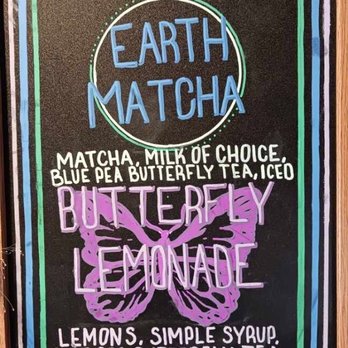 EARTH
MATCHA
MATCHA, MILK OF CHOICE,
BLUE PEA BUTTERFLY TEA, ICED
BUTTERFLY
LEMONADE
LEMONS, SIMPLE SYRUP,